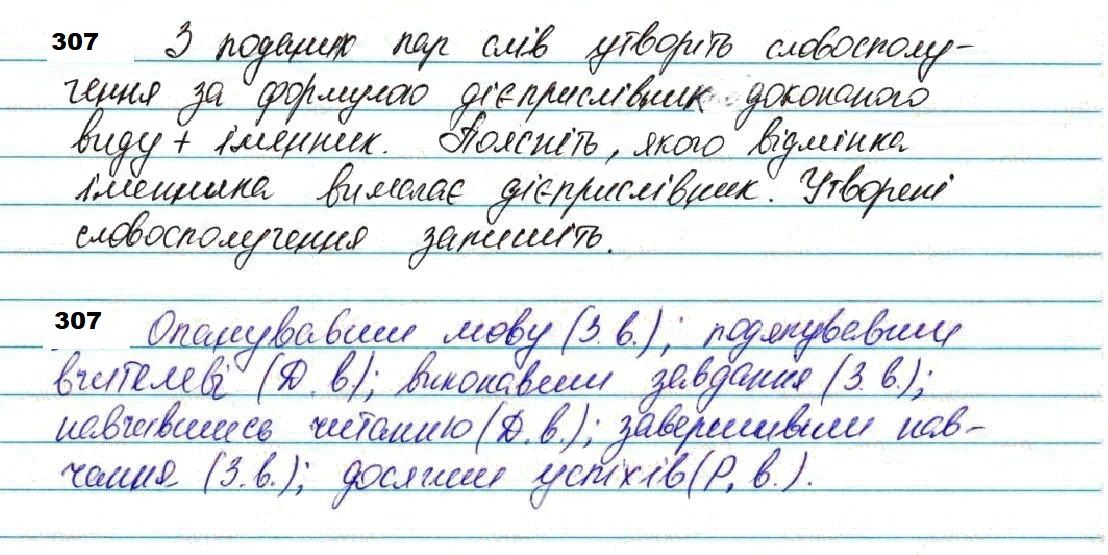 307 З поданих пар слів утворіть словосполу-
чення за формулою дієприслівник доконаного
виду + іменник. Поясніть, якого відмінка
іменника вимагає дієприслівник. Утворені
словосполучення запишіть.
307 Опанувавши мову (З. в.); подякувавши
вчителеві (Д. в); виконавши завдання (З. в.);
навчившись читанню (Д. в.); завершивши нав-
чання (З. в.); досягши успіхів (Р. в.).